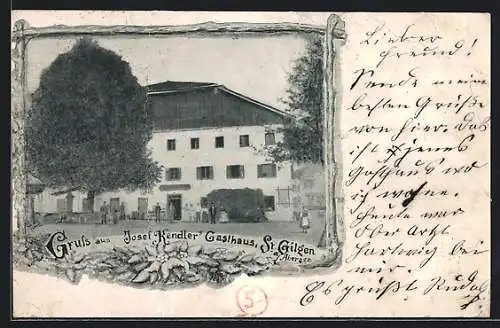 Gruss aus Josef "Kendler" Gasthaus, St. Gilgen
a/Abersee
Lieber
Freund!
Sende meine
besten Grüße
von hier. Das
ist jenes
Gasthaus wo
ich wohne.
Heute war
Ober Arzt
Hartwig bei
mir.
Es grüßt Rudolf
5